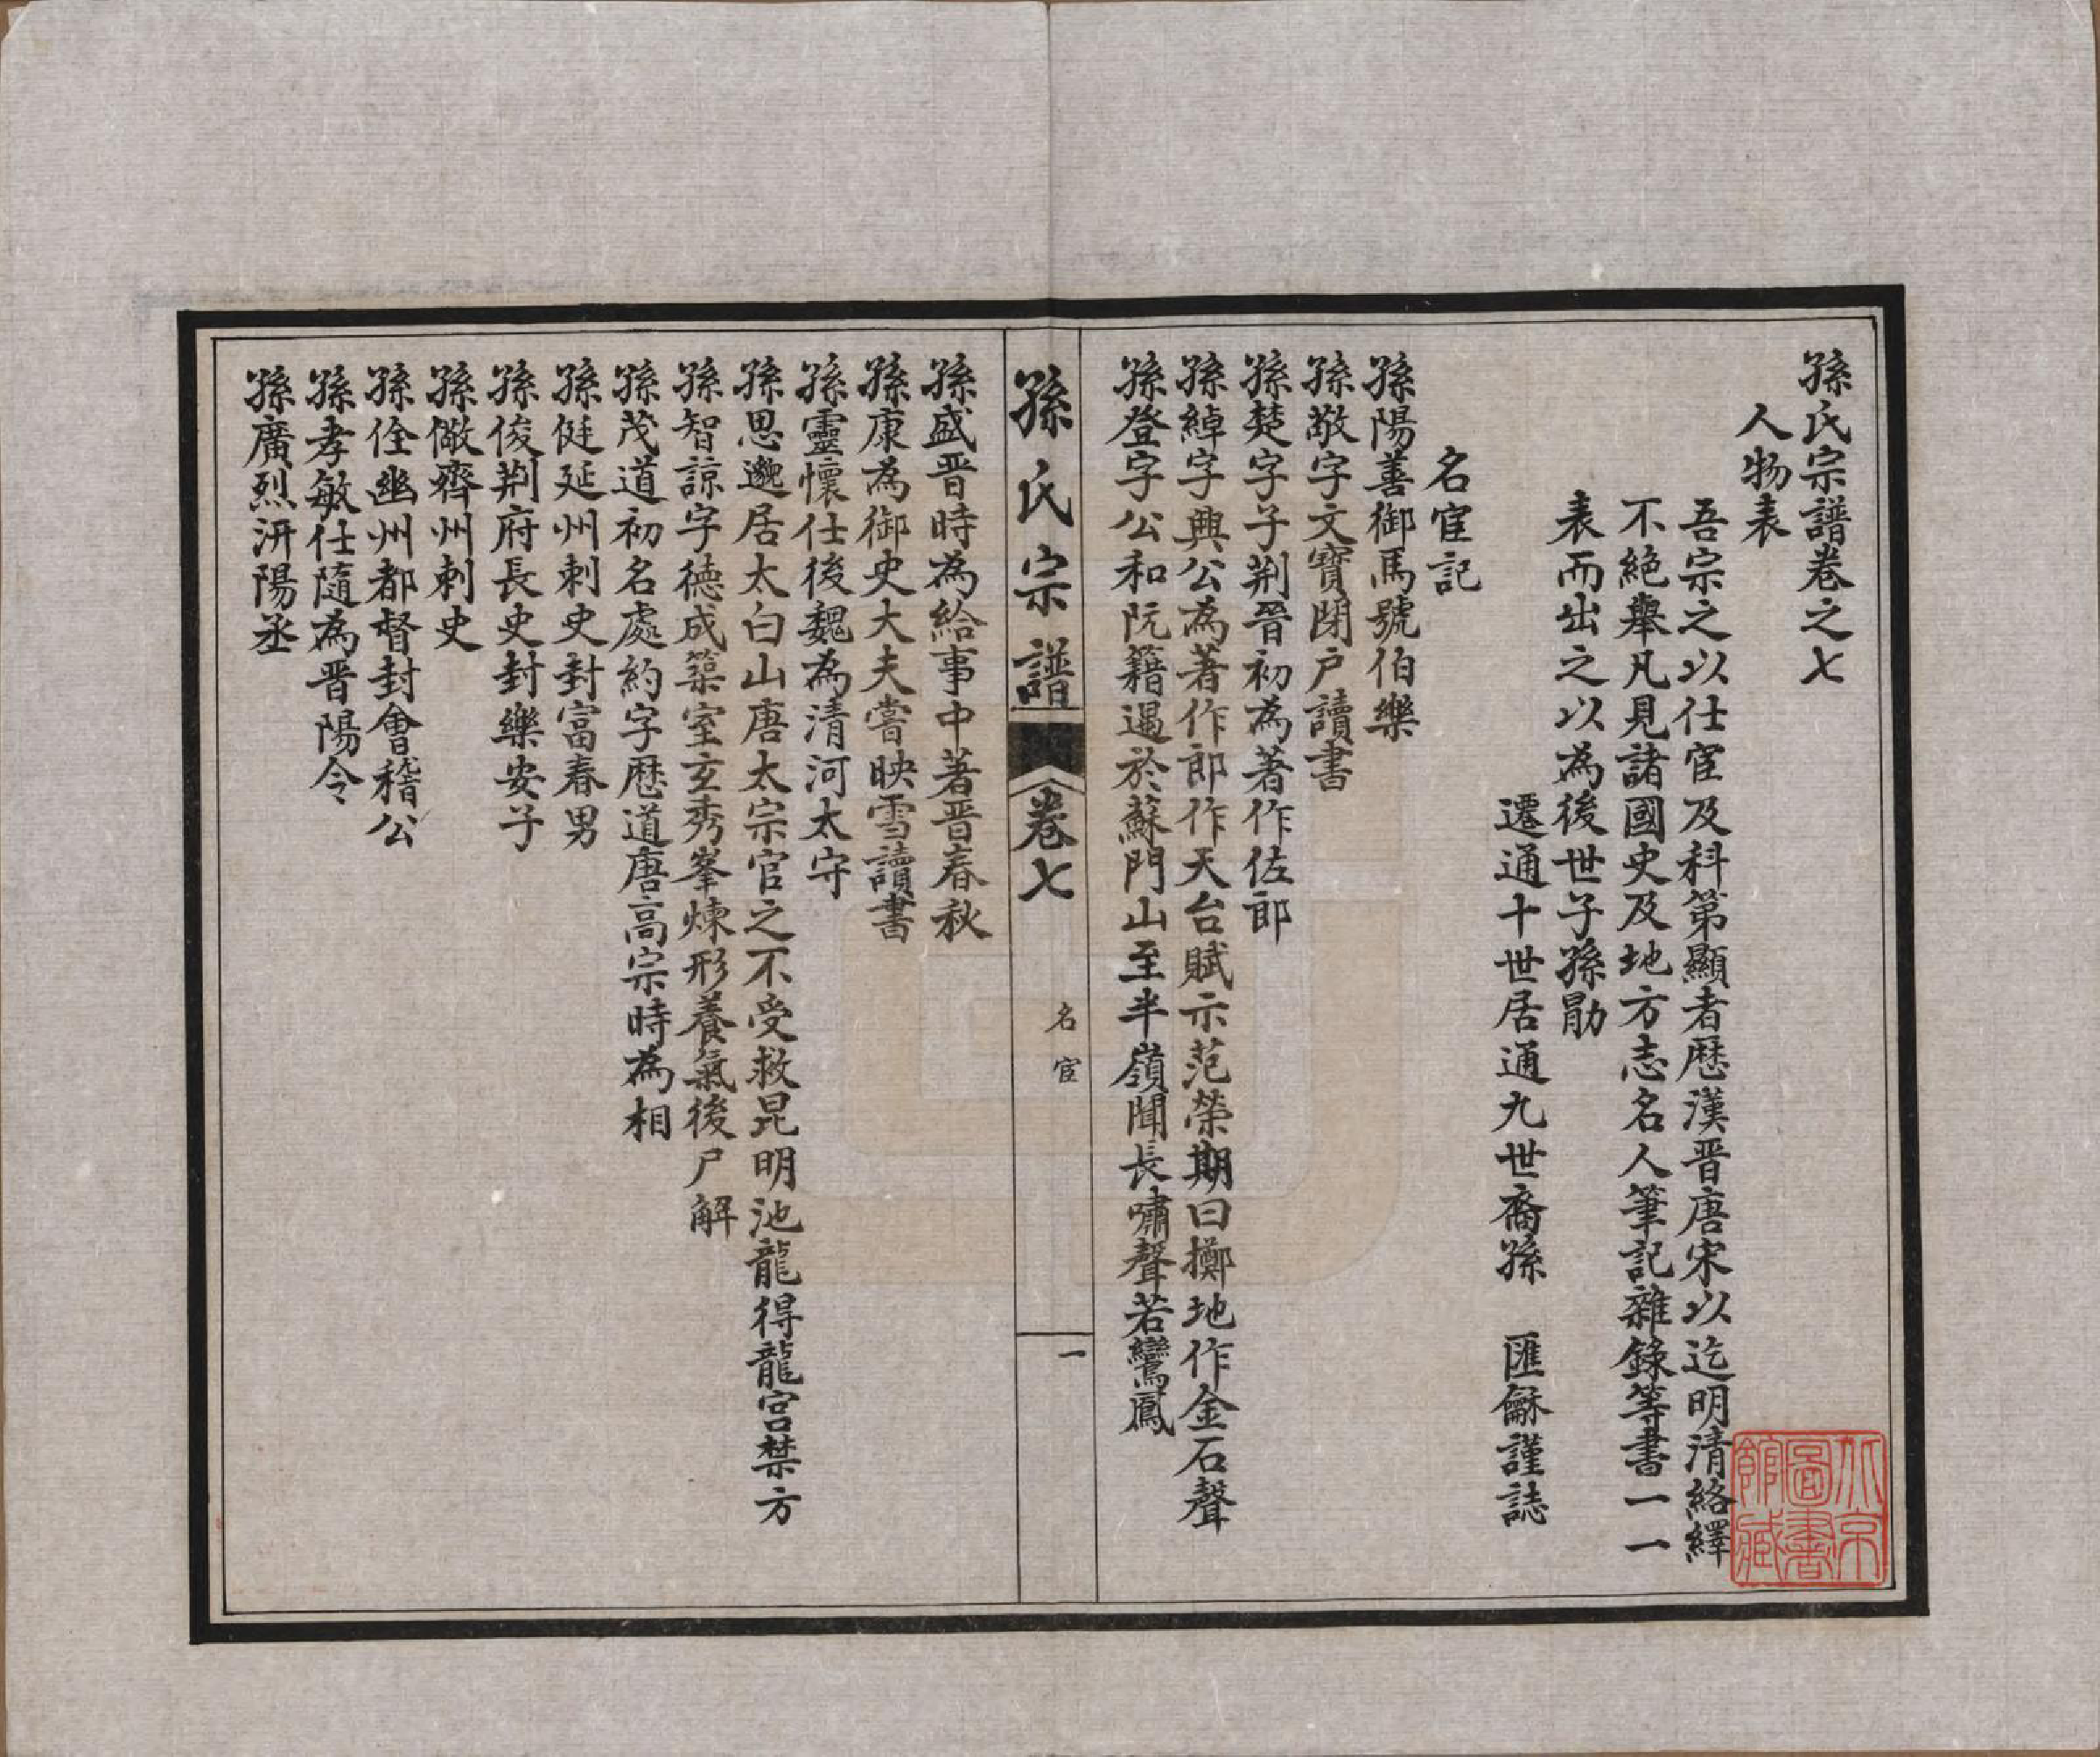 孫氏宗譜卷之七
人物表
吾宗之以仕宦及科第顯者歷漢晋唐宋以迄明清絡繹
不絕舉凡見諸國史及地方志名人筆記雜錄等書一一
表而出之以為後世子孫勖
遷通十世居通九世裔孫　匯龢謹誌
名宦記
孫陽善御馬號伯樂
孫敬字文寶閉户讀書
孫楚字子荆晉初為著作佐郎
孫綽字興公為著作郎作天台賦示范榮期曰擲地作金石聲
孫登字公和阮籍遇於蘇門山至半嶺聞長嘯聲若鸞鳳
孫氏宗譜
卷七
名宦
一
孫盛晋時為給事中著晋春秋
孫康為御史大夫嘗映雪讀書
孫靈懷仕後魏為清河太守
孫思邈居太白山唐太宗官之不受救昆明池龍得龍宫禁方
孫智諒字德成築室玄秀峯煉形養氣後尸解
孫茂道初名處約字歷道唐高宗時為相
孫侹延州刺史封富春男
孫俊荆府長史封樂安子
孫儆齊州刺史
孫佺幽州都督封會稽公
孫孝敏仕隨為晋陽令
孫廣烈汧陽丞
北京
圖書
館藏